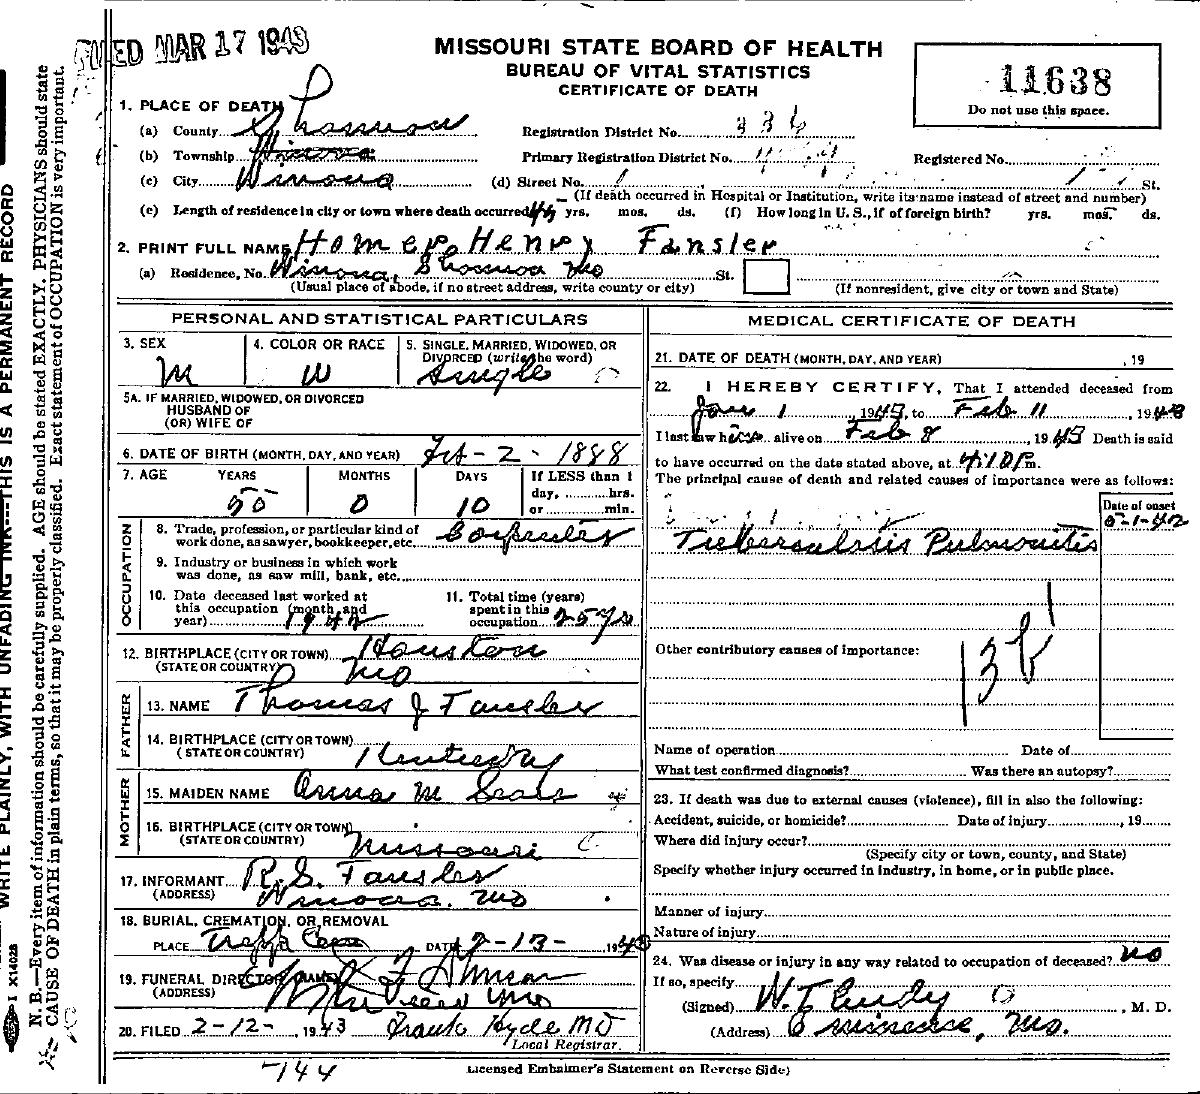 FILED MAR 17 1943
MISSOURI STATE BOARD OF HEALTH
BUREAU OF VITAL STATISTICS
CERTIFICATE OF DEATH
11638
Do not use this space.
1. PLACE OF DEATH
(a) County Shannon
(b) Township Winona
(c) City Winona
Registration District No. 336
Primary Registration District No.
Registered No.
(d) Street No. St.
(If death occurred in Hospital or Institution, write its name instead of street and number)
(e) Length of residence in city or town where death occurred 44 yrs. mos. ds. (f) How long in U. S., if of foreign birth? yrs. mos. ds.
2. PRINT FULL NAME Homer Henry Fansler
(a) Residence, No. Winona, Shannon Mo St.
(Usual place of abode, if no street address, write county or city)
(If nonresident, give city or town and State)
PERSONAL AND STATISTICAL PARTICULARS
3. SEX M
4. COLOR OR RACE W
5. SINGLE, MARRIED, WIDOWED, OR DIVORCED (write the word) Single
5A. IF MARRIED, WIDOWED, OR DIVORCED
HUSBAND OF
(OR) WIFE OF
6. DATE OF BIRTH (MONTH, DAY, AND YEAR) Feb - 2 - 1888
7. AGE YEARS 55 MONTHS 0 DAYS 10 If LESS than 1 day, hrs. or min.
OCCUPATION
8. Trade, profession, or particular kind of work done, as sawyer, bookkeeper, etc. Carpenter
9. Industry or business in which work was done, as saw mill, bank, etc.
10. Date deceased last worked at this occupation (month and year) 1942
11. Total time (years) spent in this occupation 25 yrs
12. BIRTHPLACE (CITY OR TOWN) Houston
(STATE OR COUNTRY) Mo
FATHER
13. NAME Thomas J Fansler
14. BIRTHPLACE (CITY OR TOWN)
(STATE OR COUNTRY) Kentucky
MOTHER
15. MAIDEN NAME Anna M Sears
16. BIRTHPLACE (CITY OR TOWN)
(STATE OR COUNTRY) Missouri
17. INFORMANT R. S. Fansler
(ADDRESS) Winona, Mo
18. BURIAL, CREMATION, OR REMOVAL
PLACE DATE 2-13- 1943
19. FUNERAL DIRECTOR (NAME)
(ADDRESS) Mo
20. FILED 2-12-, 1943 Frank Hyde MD
Local Registrar.
MEDICAL CERTIFICATE OF DEATH
21. DATE OF DEATH (MONTH, DAY, AND YEAR) , 19
22. I HEREBY CERTIFY, That I attended deceased from
Jan 1, 1943, to Feb 11, 1943
I last saw him alive on Feb 8, 1943 Death is said
to have occurred on the date stated above, at 4:10 P m.
The principal cause of death and related causes of importance were as follows:
Date of onset
5-1-42
Tuberculosis Pulmonitis
Other contributory causes of importance:
13b1
Name of operation Date of
What test confirmed diagnosis? Was there an autopsy?
23. If death was due to external causes (violence), fill in also the following:
Accident, suicide, or homicide? Date of injury , 19
Where did injury occur?
(Specify city or town, county, and State)
Specify whether injury occurred in industry, in home, or in public place.
Manner of injury
Nature of injury
24. Was disease or injury in any way related to occupation of deceased? no
If so, specify
(Signed) W. T. Eudy, M. D.
(Address) Eminence, Mo.
-144
Licensed Embalmer's Statement on Reverse Side)
WRITE PLAINLY, WITH UNFADING INK---THIS IS A PERMANENT RECORD
N. B.—Every item of information should be carefully supplied. AGE should be stated EXACTLY. PHYSICIANS should state
CAUSE OF DEATH in plain terms, so that it may be properly classified. Exact statement of OCCUPATION is very important.
I X14028